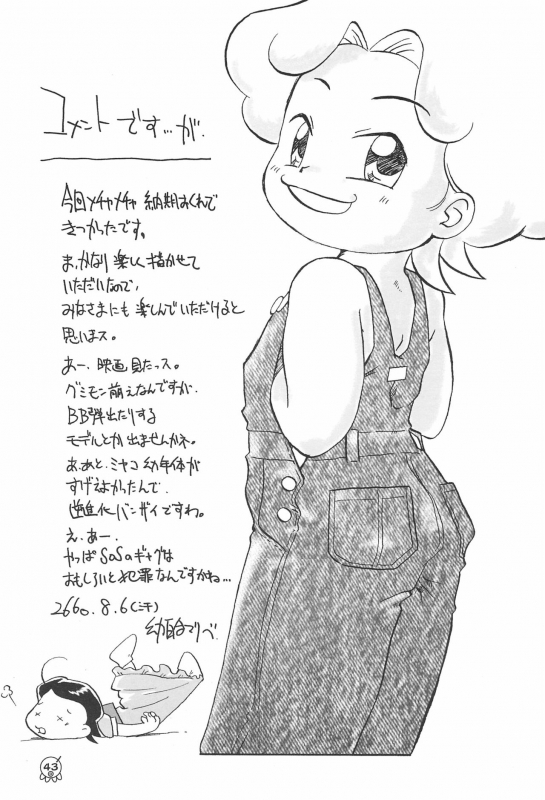 コメントです…が.
今回メチャメチャ 納期おくれで
きつかったです。
ま、かなり楽しく描かせて
いただいたので、
みなさまにも楽しんでいただけると
思います。
あー、映画見たっス。
グミモン萌えなんですが、
BB弾出たりする
モデルとか出ませんかネ。
あ、あと、ミヤコ幼年体が
すげえよかったんで
退化バンザイですわ。
え、あー、
やっぱSaSaギャグは
おもしろいと犯罪なんですかね…
8.6
43